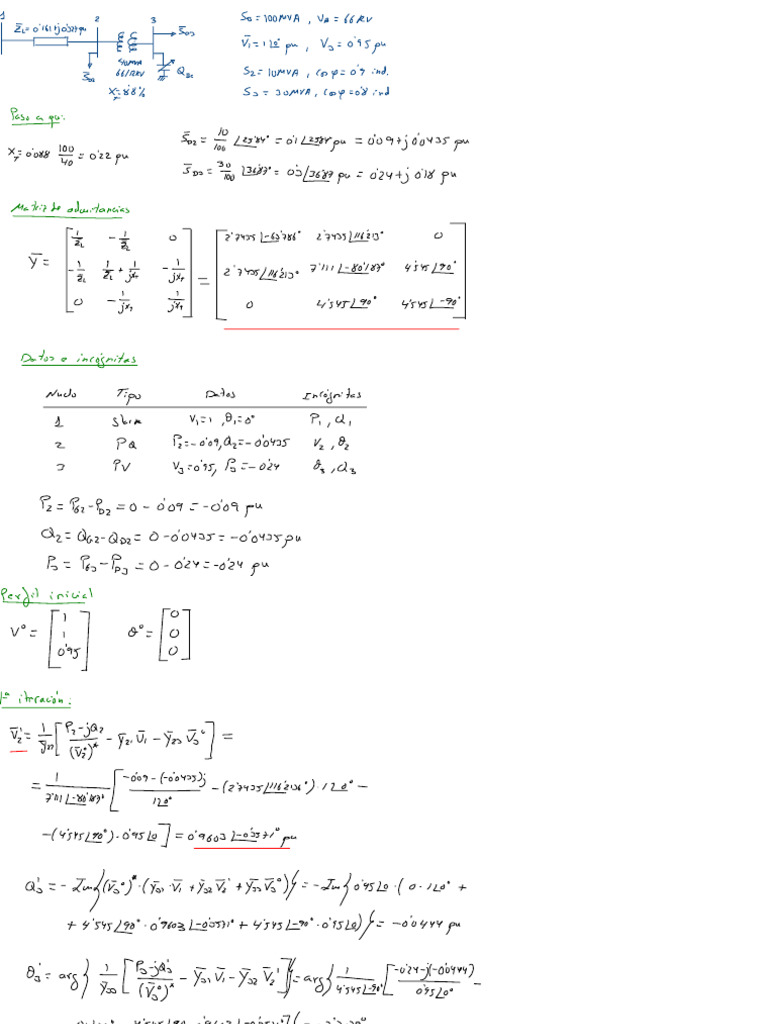 1 2 3
Z̄L=0'161+j0'327 pu
S̄D3
S̄D2
40MVA
66/12KV
XT=8'8%
QDC
S0=100MVA, VB=66KV
V̄1=1∠0° pu, V3=0'95 pu
S2=10MVA, cosφ=0'9 ind.
S3=30MVA, cosφ=0'8 ind
Paso a qu:
XT=0'088 100/40=0'22 pu
S̄D2=10/100 ∠25'84°=0'1∠25'84° pu=0'09+j0'0435 pu
S̄D3=30/100 ∠36'87°=0'3∠36'87° pu=0'24+j0'18 pu
Matriz de admitancias
Ȳ= [ 1/Z̄L -1/Z̄L 0 ; -1/Z̄L 1/Z̄L+1/jXT -1/jXT ; 0 -1/jXT 1/jXT ] = [ 2'7435∠-63'786° 2'7435∠116'213° 0 ; 2'7435∠116'213° 7'111∠-80'187° 4'545∠90° ; 0 4'545∠90° 4'545∠-90° ]
Datos e incógnitas
Nudo Tipo Datos Incógnitas
1 V1=1, θ1=0° P1, Q1
2 PQ P2=-0'09, Q2=-0'0435 V2, θ2
3 PV V3=0'95, P3=-0'24 θ3, Q3
P2=PG2-PD2=0-0'09=-0'09 pu
Q2=QG2-QD2=0-0'0435=-0'0435 pu
P3=PG3-PD3=0-0'24=-0'24 pu
Perfil inicial
V°= [ 1 ; 1 ; 0'95 ] θ°= [ 0 ; 0 ; 0 ]
1ª iteración:
V̄2'=1/Ȳ22 [ (P2-jQ2)/(V̄2°)* - Ȳ21 V̄1 - Ȳ23 V̄3° ] =
= 1/(7'111∠-80'187°) [ (-0'09-(-0'0435)j)/(1∠0°) -(2'7435∠116'213°)·1∠0° -
-(4'545∠90°)·0'95∠0 ] = 0'9603∠-0'5571° pu
Q3'=-Im{(V̄3°)*·(Ȳ31·V̄1+Ȳ32 V̄2'+Ȳ33 V̄3°)}=-Im{0'95∠0·(0·1∠0°+
+4'545∠90°·0'9603∠-0'5571°+4'545∠-90°·0'95∠0)}=-0'0444 pu
θ3'=arg{ 1/Ȳ33 [ (P3-jQ3')/(V̄3°)* - Ȳ31 V̄1 - Ȳ32 V̄2' ] }=arg{ 1/(4'545∠-90°) [ (-0'24-j(-0'0444))/(0'95∠0°) -